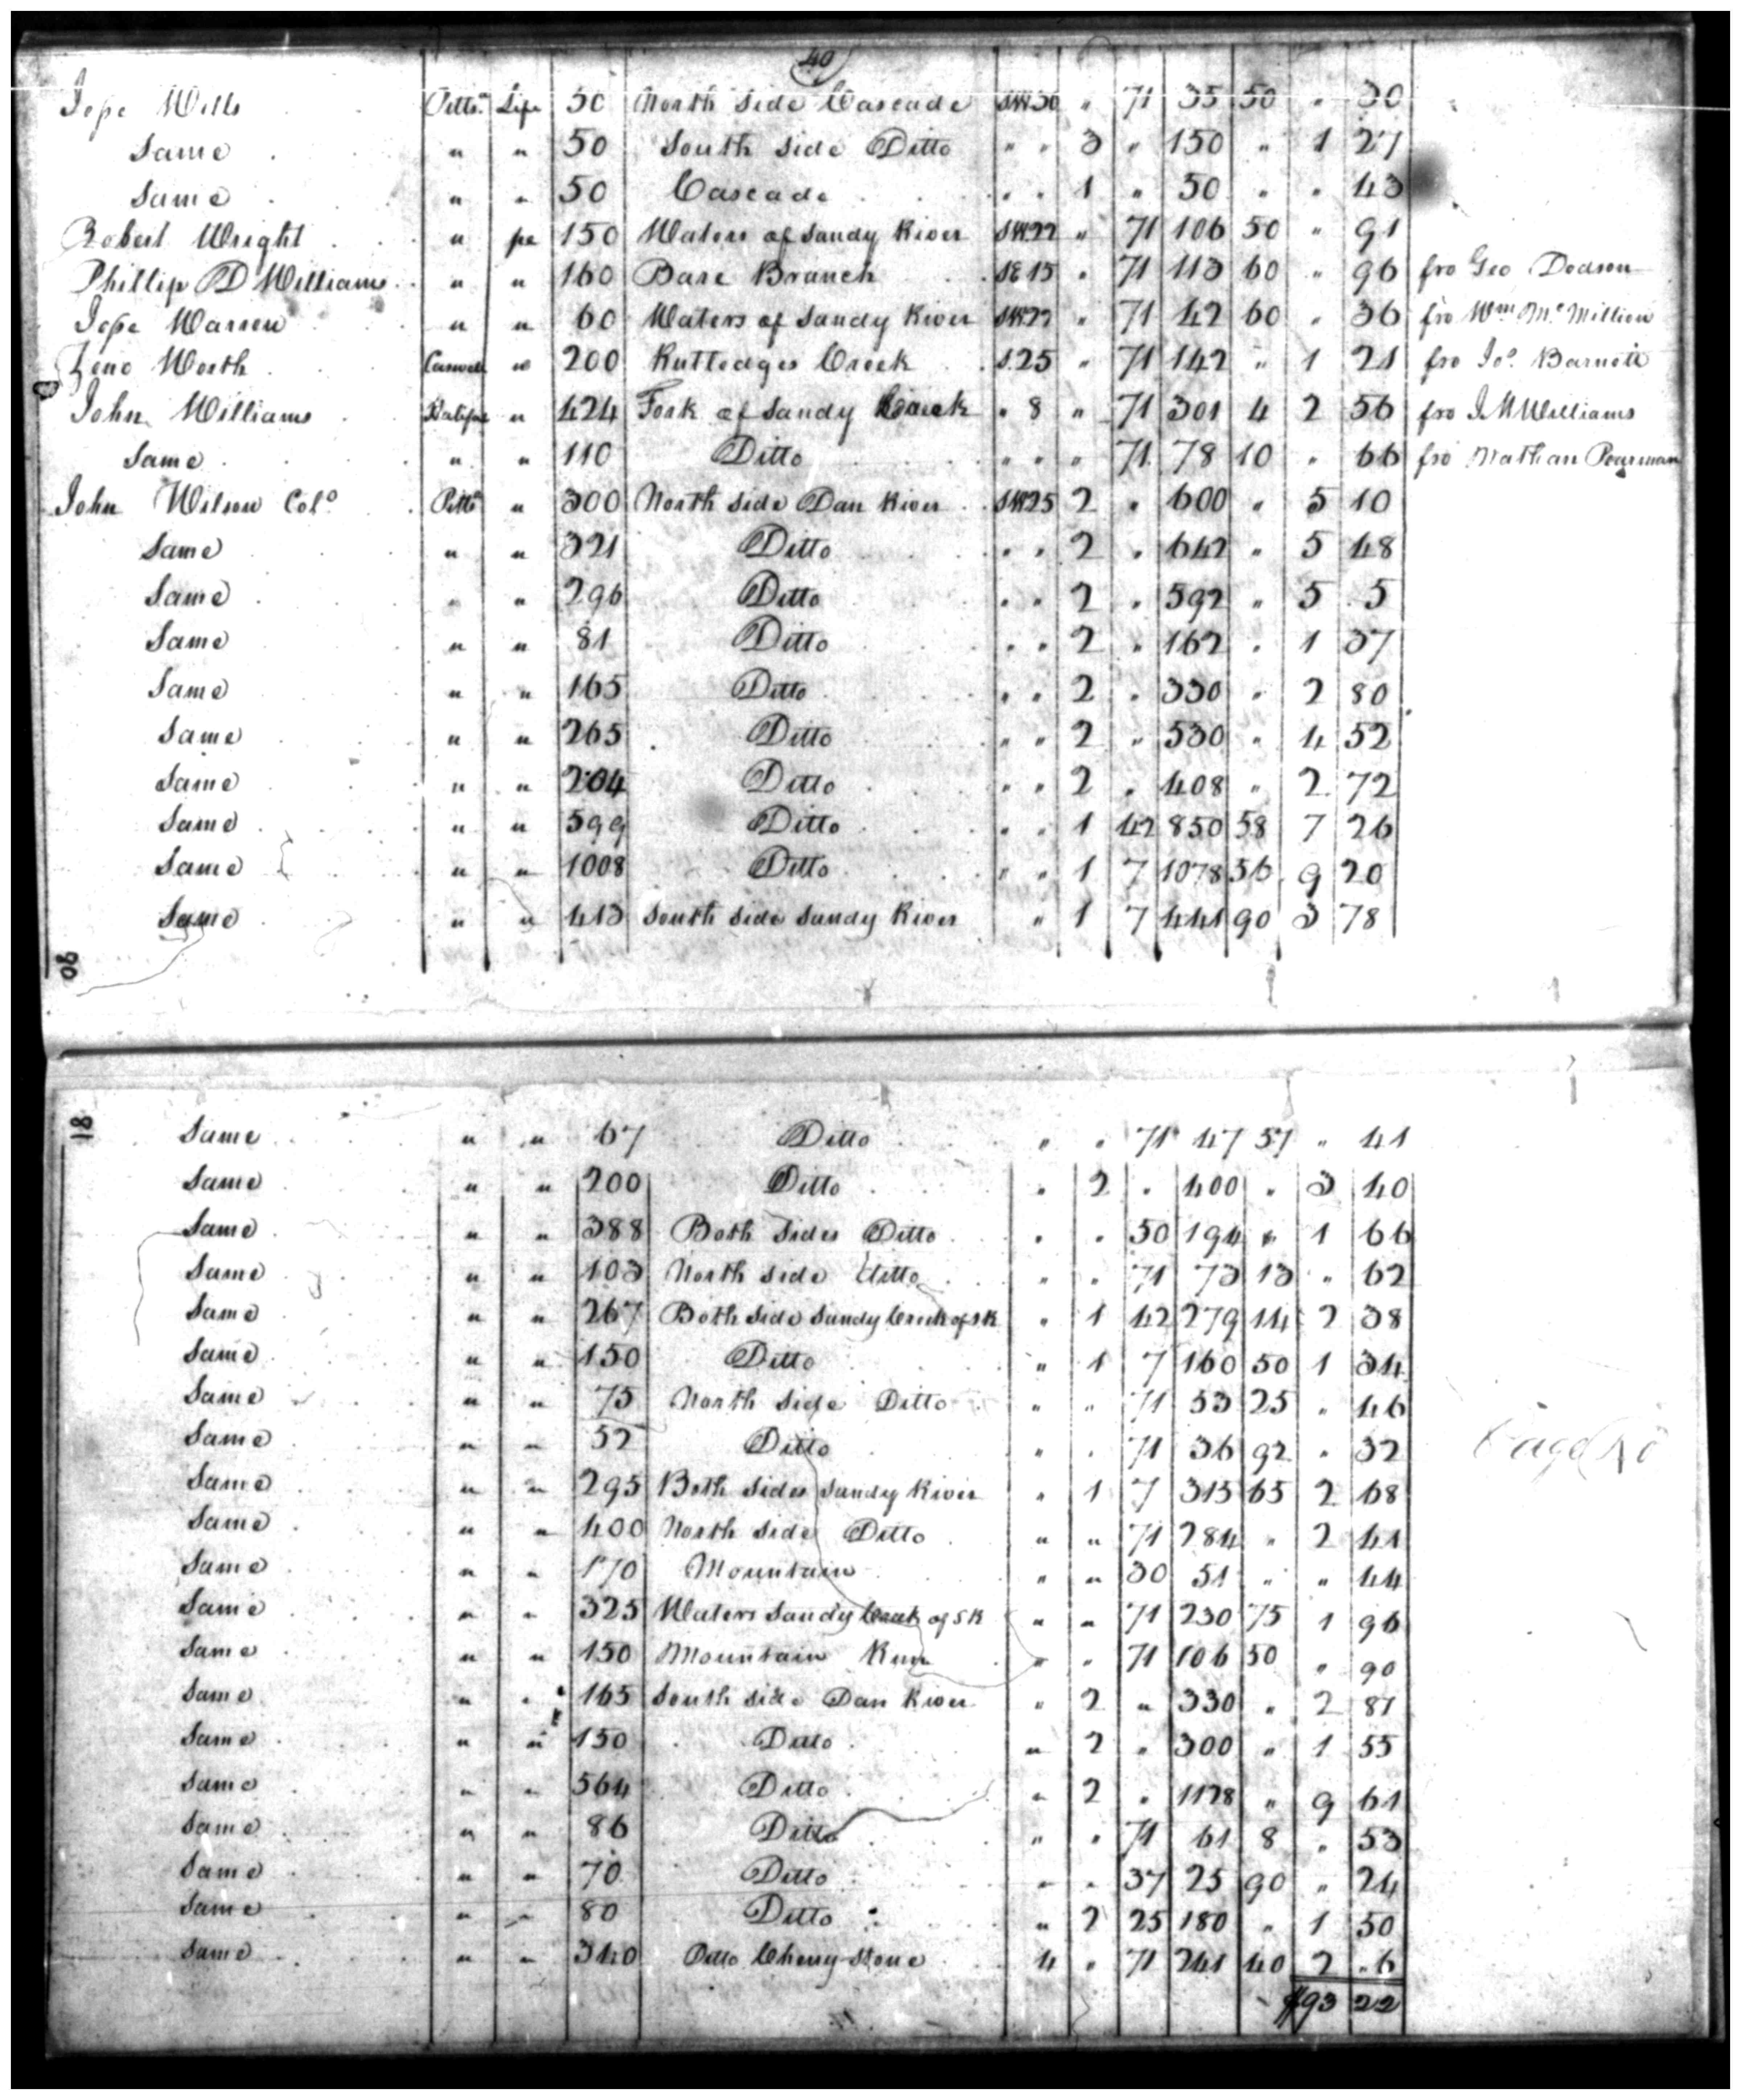 40
Jesse Wills Pitts. Life 50 North Side Cascade SW30 " 71 35 50 " 30
Same " " 50 South Side Ditto " " 3 " 150 " 1 27
Same " " 50 Cascade " " 1 " 50 " " 43
Robert Wright " fee 150 Waters of Sandy River SW22 " 71 106 50 " 91
Phillip D Williams " " 160 Bare Branch SE 15 " 71 113 60 " 96 fro Geo Dodson
Jesse Warren " " 60 Waters of Sandy River SW22 " 71 42 60 " 36 fro Wm Mc Million
Zeno Worth Caswell " 200 Rutledges Creek S.25 " 71 142 " 1 21 fro Jos. Barnett
John Williams Halifax " 424 Fork of Sandy Creek " 8 " 71 301 4 2 56 fro J M Williams
Same " " 110 Ditto " " " 71 78 10 " 66 fro Nathan Pearman
John Wilson Colo Pitts " 300 North Side Dan River SW25 2 " 600 " 5 10
Same " " 321 Ditto " " 2 " 642 " 5 48
Same " " 296 Ditto " " 2 " 592 " 5 5
Same " " 81 Ditto " " 2 " 162 " 1 37
Same " " 165 Ditto " " 2 " 330 " 2 80
Same " " 265 Ditto " " 2 " 530 " 4 52
Same " " 204 Ditto " " 2 " 408 " 2 72
Same " " 599 Ditto " " 1 42 850 58 7 26
Same " " 1008 Ditto " " 1 7 1078 56 9 20
Same " " 413 South Side Sandy River " 1 7 441 90 3 78
18
Same " " 67 Ditto " " 71 47 57 " 41
Same " " 200 Ditto " 2 " 400 " 3 40
Same " " 388 Both Sides Ditto " " 50 194 " 1 66
Same " " 103 North Side Ditto " " 71 73 13 " 62
Same " " 267 Both Side Sandy Creek of S R " 1 42 279 14 2 38
Same " " 150 Ditto " 1 7 160 50 1 34
Same " " 75 North Side Ditto " " 71 53 25 " 46
Same " " 52 Ditto " " 71 36 92 " 32
Same " " 295 Both Sides Sandy River " 1 7 315 65 2 68
Same " " 400 North Side Ditto " " 71 284 " 2 41
Same " " 170 Mountain " " 30 51 " " 44
Same " " 325 Waters Sandy Creek of S R " " 71 230 75 1 96
Same " " 150 Mountain Run " " 71 106 50 " 90
Same " " 165 South Side Dan River " 2 " 330 " 2 81
Same " " 150 Ditto " 2 " 300 " 1 55
Same " " 564 Ditto " 2 " 1128 " 9 61
Same " " 86 Ditto " " 71 61 8 " 53
Same " " 70 Ditto " " 37 25 90 " 24
Same " " 80 Ditto " 2 25 180 " 1 50
Same " " 340 Ditto Cherry Stone 4 " 71 241 40 2 " 6
$93 22